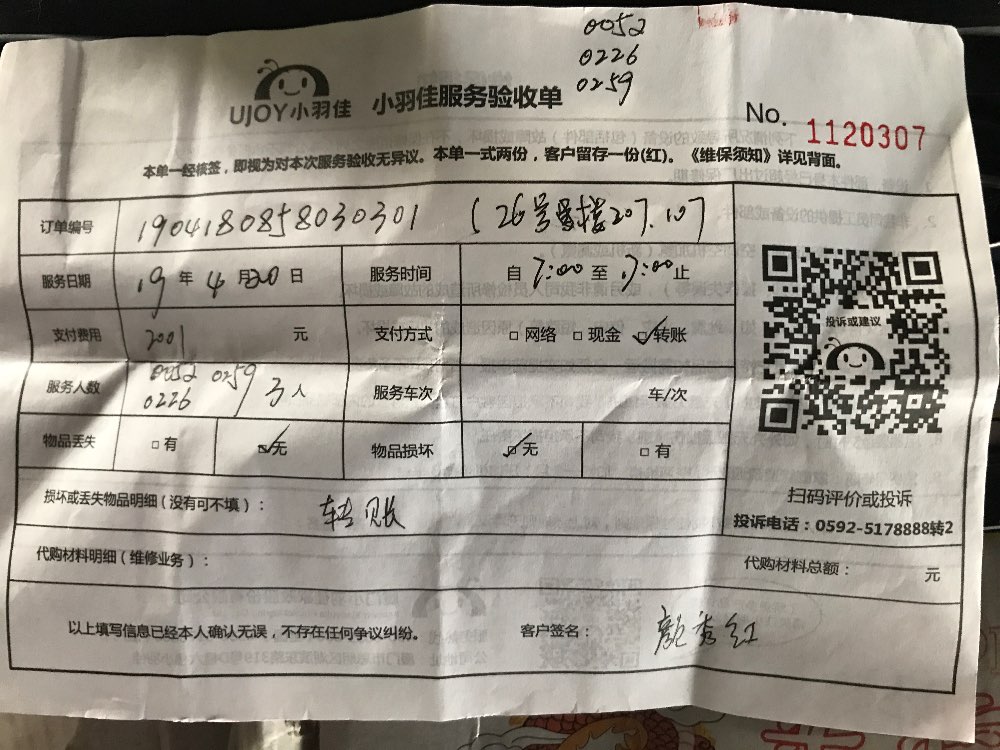 0052
0226
0259
UJOY小羽佳 小羽佳服务验收单
No. 1120307
本单一经核签，即视为对本次服务验收无异议。本单一式两份，客户留存一份(红)。《维保须知》详见背面。
订单编号 190418085803030301 26号 207.107
服务日期 19年4月20日 服务时间 自7:00至17:00止
支付费用 2001 元 支付方式 □网络 □现金 ☑转账
服务人数 0052 0259 0226 3人 服务车次 车/次
物品丢失 □有 ☑无 物品损坏 ☑无 □有
损坏或丢失物品明细（没有可不填）： 转账
代购材料明细（维修业务）： 代购材料总额： 元
以上填写信息已经本人确认无误，不存在任何争议纠纷。 客户签名： 颜秀红
投诉或建议
扫码评价或投诉
投诉电话：0592-5178888转2